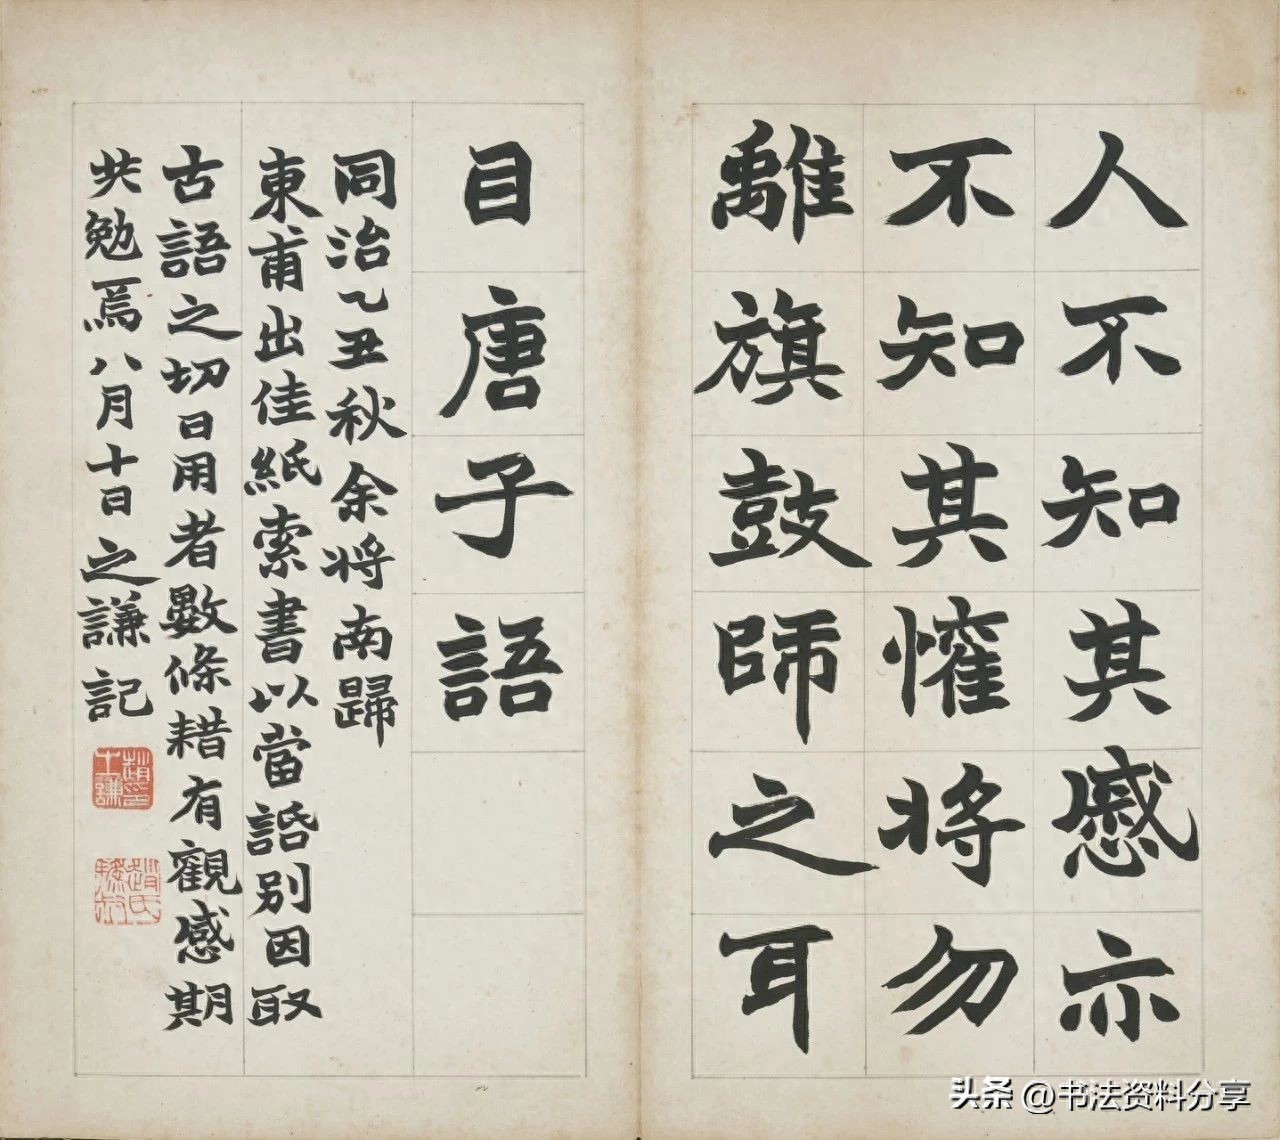 人不知其慼亦
不知其懽將勿
離旗鼓師之耳
目唐子語
同治乙丑秋余將南歸
東甫出佳紙索書以當諙別因取
古語之切日用者數條耤有觀感期
共勉焉八月十日之謙記
趙之謙印
头条 @书法资料分享